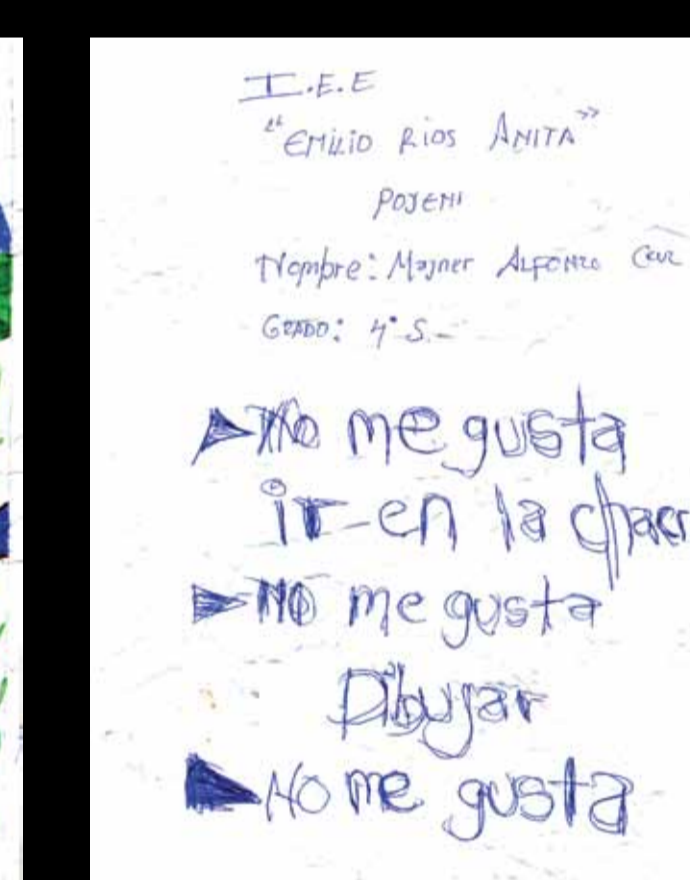 I.E.E
"EMILIO RIOS ANITA"
POJENI
Nombre: Majner ALFONZO Cruz
GRADO: 4° S.-
No me gusta
ir en la chacr
NO me gusta
Dibujar
NO me gusta